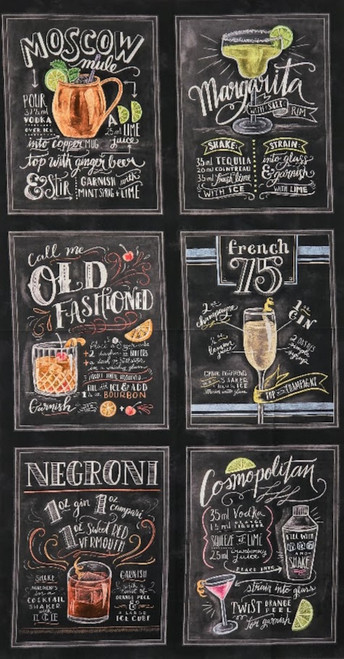 MOSCOW
mule
POUR
VODKA
OVER ICE
LIME
juice
into copper MUG
top with ginger beer
& STIR
GARNISH with
MINT SPRIG & LIME
Margarita
WITH SALT RIM
SHAKE
35ml TEQUILA
20ml COINTREAU
35ml fresh lime
WITH ICE
STRAIN
into glass
& garnish
WITH LIME
Call me
OLD
FASHIONED
ICE & ADD
BOURBON
Garnish
french
75
champagne
1oz
GIN
TOP with CHAMPAGNE
NEGRONI
1oz gin 1oz campari
1oz Sweet RED
VERMOUTH
SHAKE
in a
COCKTAIL
SHAKER
with
ICE
GARNISH
with a
twist of
ORANGE PEEL
&
a LARGE
ICE CUBE
Cosmopolitan
35ml Vodka
SQUEEZE of LIME
25ml cranberry
juice
FILL WITH
ICE
AND
SHAKE
strain into glass
TWIST ORANGE
PEEL
for garnish